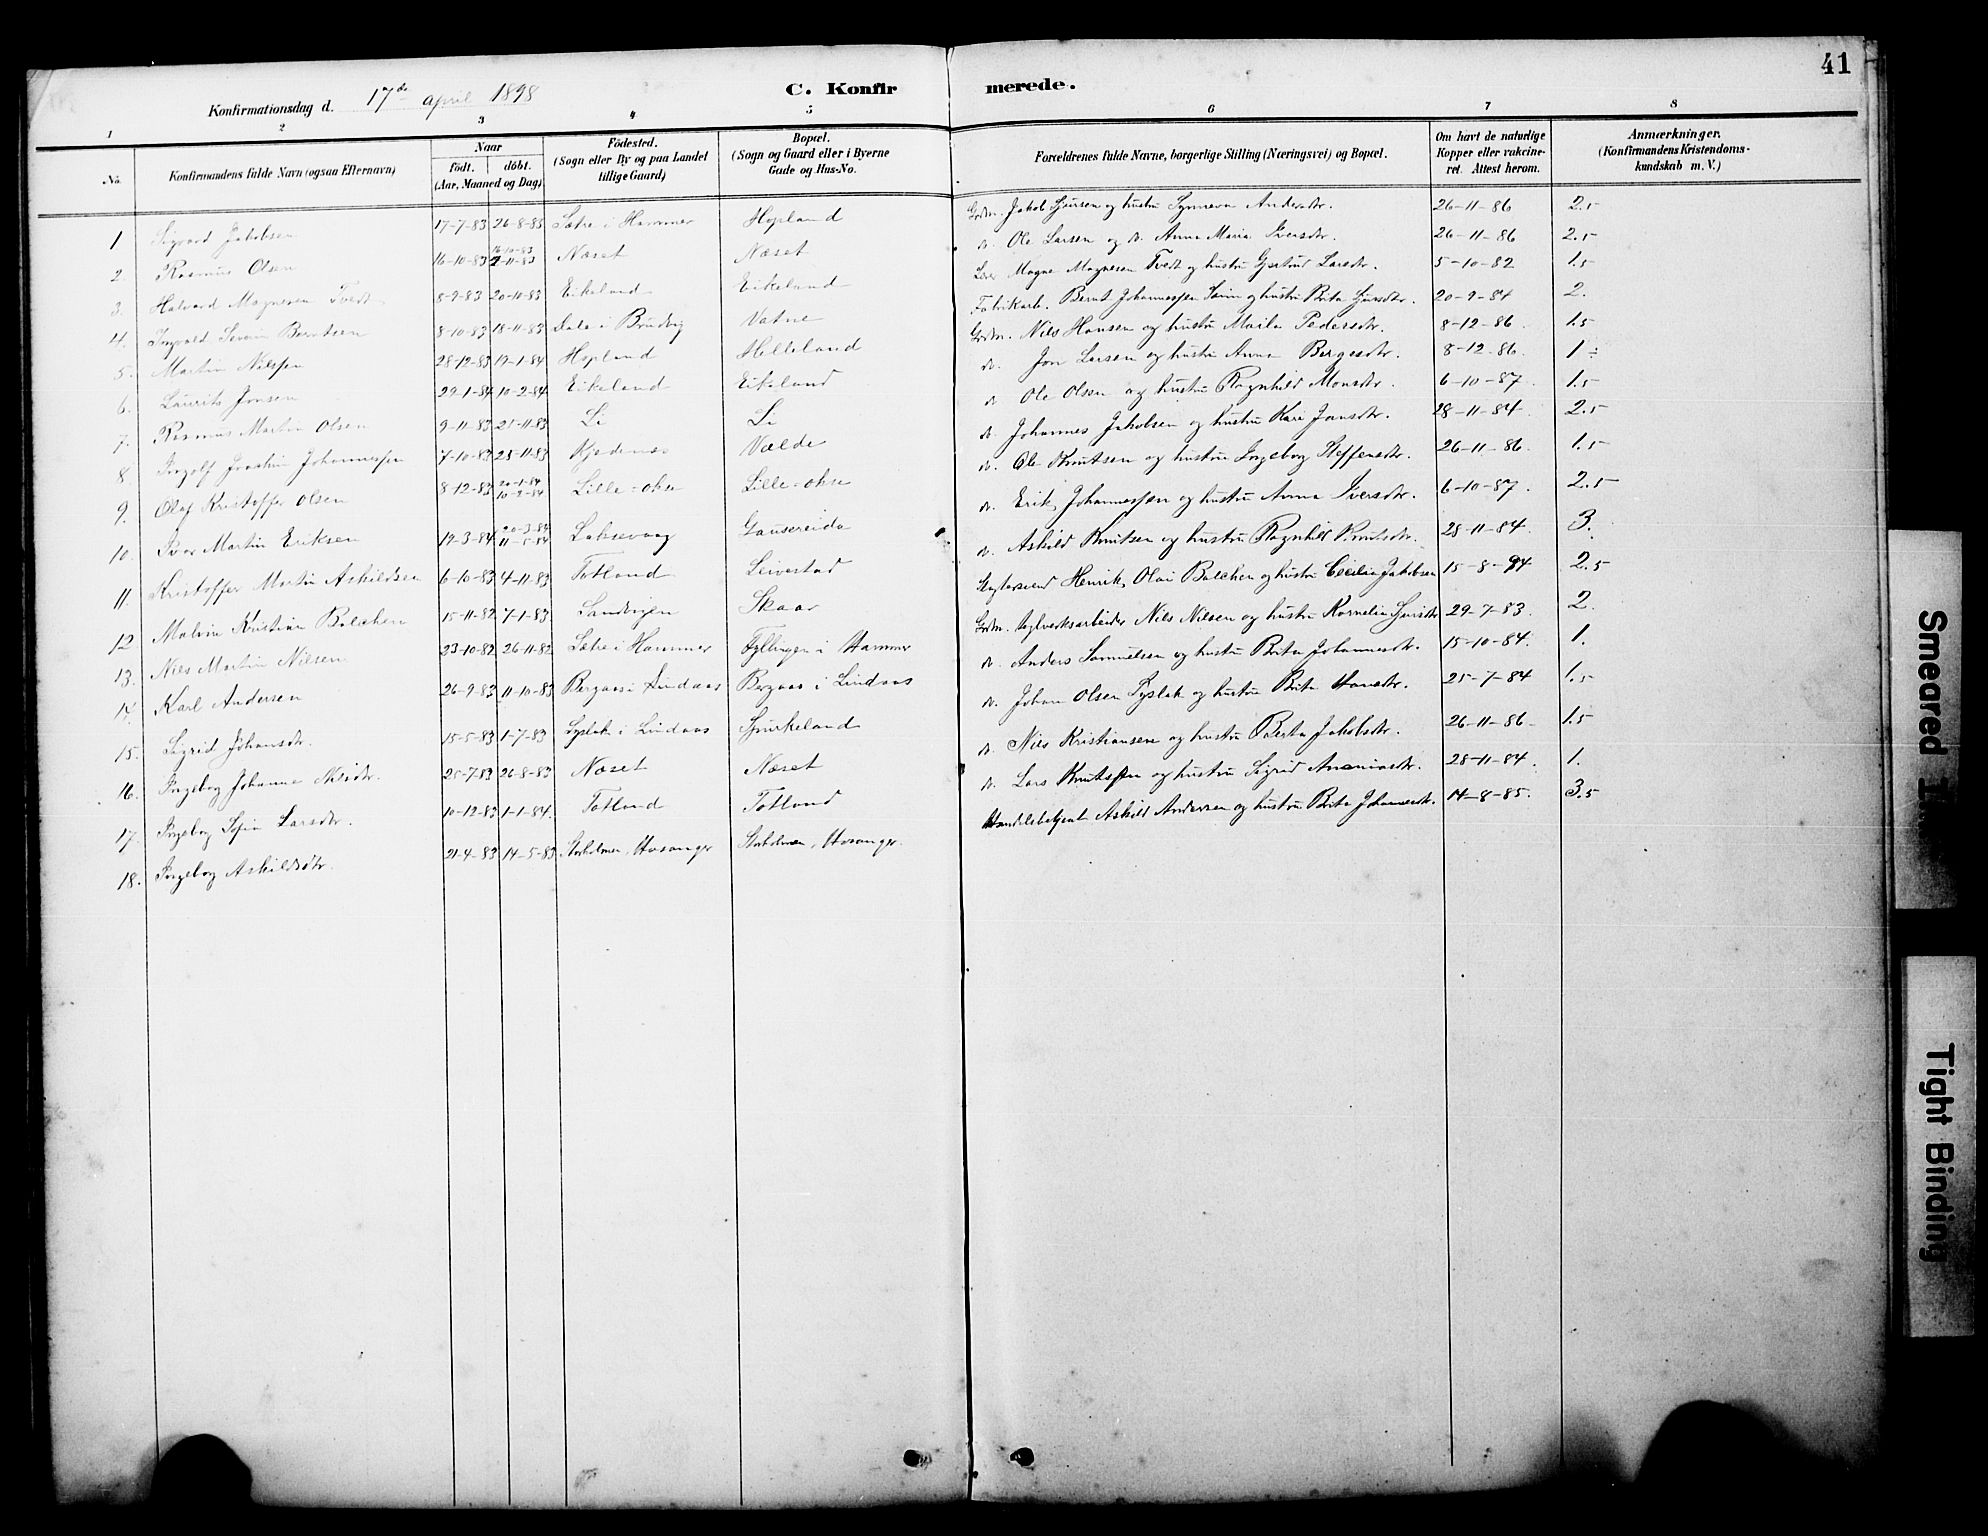 41
Konfirmationsdag d. 17de april 1898
C. Konfirmerede.
1 2 3 4 5 6 7 8
No. Konfirmandens fulde Navn (ogsaa Efternavn) Naar født. døbt. (Aar, Maaned og Dag) Fødested. (Sogn eller By og paa Landet tillige Gaard) Bopæl. (Sogn og Gaard eller i Byerne Gade og Hus-No. Forældrenes fulde Navne, borgerlige Stilling (Næringsvei) og Bopæl. Om havt de naturlige Kopper eller vakcineret. Attest herom. Anmærkninger. (Konfirmandens Kristendomskundskab m. V.)
1 Sigvard Jakobsen 17-7-83 26-8-83 Sætre i Hammer Hopland Grdm. Jakob Sjursen og hustru Synneva Andersdtr. 26-11-86 2.5
2 Rasmus Olsen 16-10-83 Næset Næset Ole Larsen og Anna Maria Iversdtr. 26-11-86 2.5
3. Halvard Magnesen Tvedt 8-9-83 20-10-83 Eikeland Eikeland Magne Magnesen Tvedt og hustru Gjertrud Larsdtr. 5-10-82 1.5
4. Ingvald Severin Berntsen 8-10-83 18-11-83 Dale i Bruvig Vatne Fabrikarb. Bernt Johannessen og hustru Brita Sjursdtr. 20-9-84 2.
5. Martin Nilsen 28-12-83 19-1-84 Hopland Helleland Grdm. Nils Hansen og hustru Marta Pedersdtr. 8-12-86 1.5
6. Laurits Jonsen 29-1-84 10-2-84 Eikeland Eikeland Jon Larsen og hustru Anna Bergesdtr. 8-12-86. 1
7. Rasmus Martin Olsen 9-11-83 25-11-83 Li Li Ole Olsen og hustru Ragnhild Monsdtr. 6-10-87. 1.5
8. Ingolf Joachim Johannessen 7-10-83 25-11-83 Kjødenæs Vælde Johannes Jakobsen og hustru Kari Jonsdtr. 28-11-84. 2.5
9. Olaf Kristoffer Olsen 8-12-83 20-1-84 10-2-84 Lille-okse Lille-okse Ole Knutsen og hustru Ingeborg Steffensdtr. 26-11-86. 1.5
10. Ivar Martin Eriksen 19-3-84 20-3-84 11-5-84 Laksevaag Gausereide Erik Johannessen og hustru Anna Iversdtr. 6-10-87. 2.5
11. Kristoffer Martin Askildsen 6-10-83 4-11-83 Totland Leivestad Askild Knutsen og hustru Ragnhild Knutsdtr. 28-11-84. 3.
12 Malvin Kristian Balchen 15-11-82 7-1-83 Sandvigen Skaar Henrik Olai Balchen og hustru Cecilie Jakobsen 15-8-94 2.5
13. Nils Martin Nilsen 23-10-82 26-11-82 Sætre i Hammer Fyllingen i Hammer Grdm. Nils Nilsen og hustru Kornelia Sjursdtr 29-7-83. 2.
14. Karl Andersen 26-9-83 11-10-83 Bergaas i Lindaas Bergaas i Lindaas Anders Samuelsen og hustru Brita Johannesdtr. 15-10-84. 1.
15. Sigrid Johansdtr. 15-5-83 1-7-83 Syslak i Lindaas Spurkeland Johan Olsen Syslak og hustru Brita Hansdtr. 25-7-84 1.5
16. Ingeborg Johanne Nilsdtr. 25-7-83 26-8-83 Næset Næset Nils Kristiansen og hustru Berta Jakobsdtr. 26-11-86 1.5
17. Ingeborg Sofia Larsdtr. 10-12-83 1-1-84. Totland Totland Lars Knutsen og hustru Sigrid Ananiasdtr. 28-11-84. 1.
18. Ingeborg Askildsdtr. 21-4-83 14-5-83 Storholmen, Hosanger Storholmen, Hosanger. Handelsbetjent Askild Andersen og hustru Brita Johannesdtr. 14-8-85. 3.5
Smeared
Tight Binding